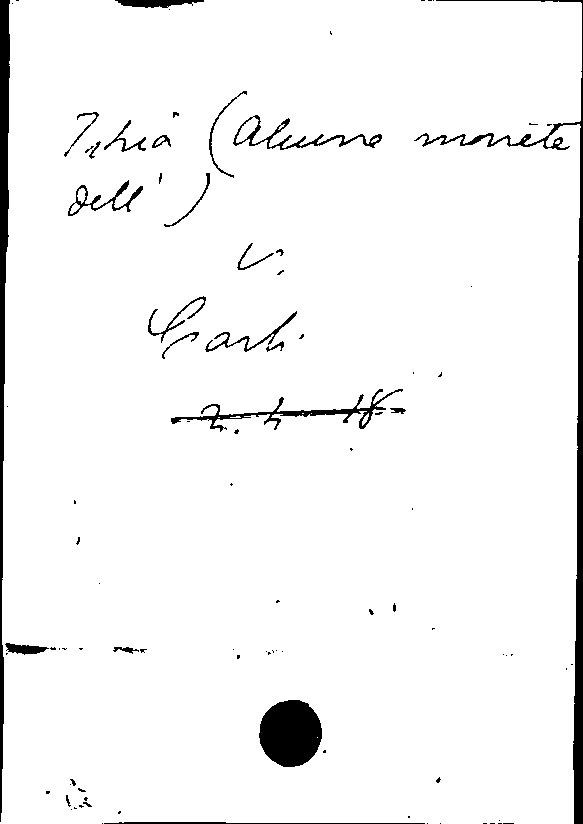 Istria (Alcune monete
dell')
v.
Carli
2. 4 18